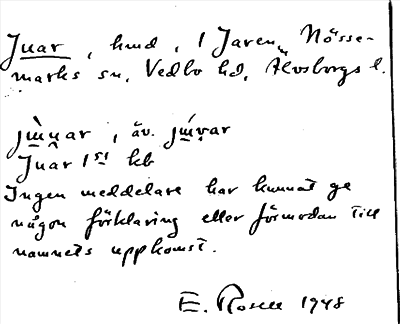 Juar, hmd, i Jaren, Nösse-
marks sn, Vedbo hd, Älvsborgs l.
jɯ̀u̯ar, äv. jɯ́v̯ar
Juar 1 st hb
Ingen meddelare har kunnat ge
någon förklaring eller förmodan till
namnets uppkomst.
E. Rosell 1948